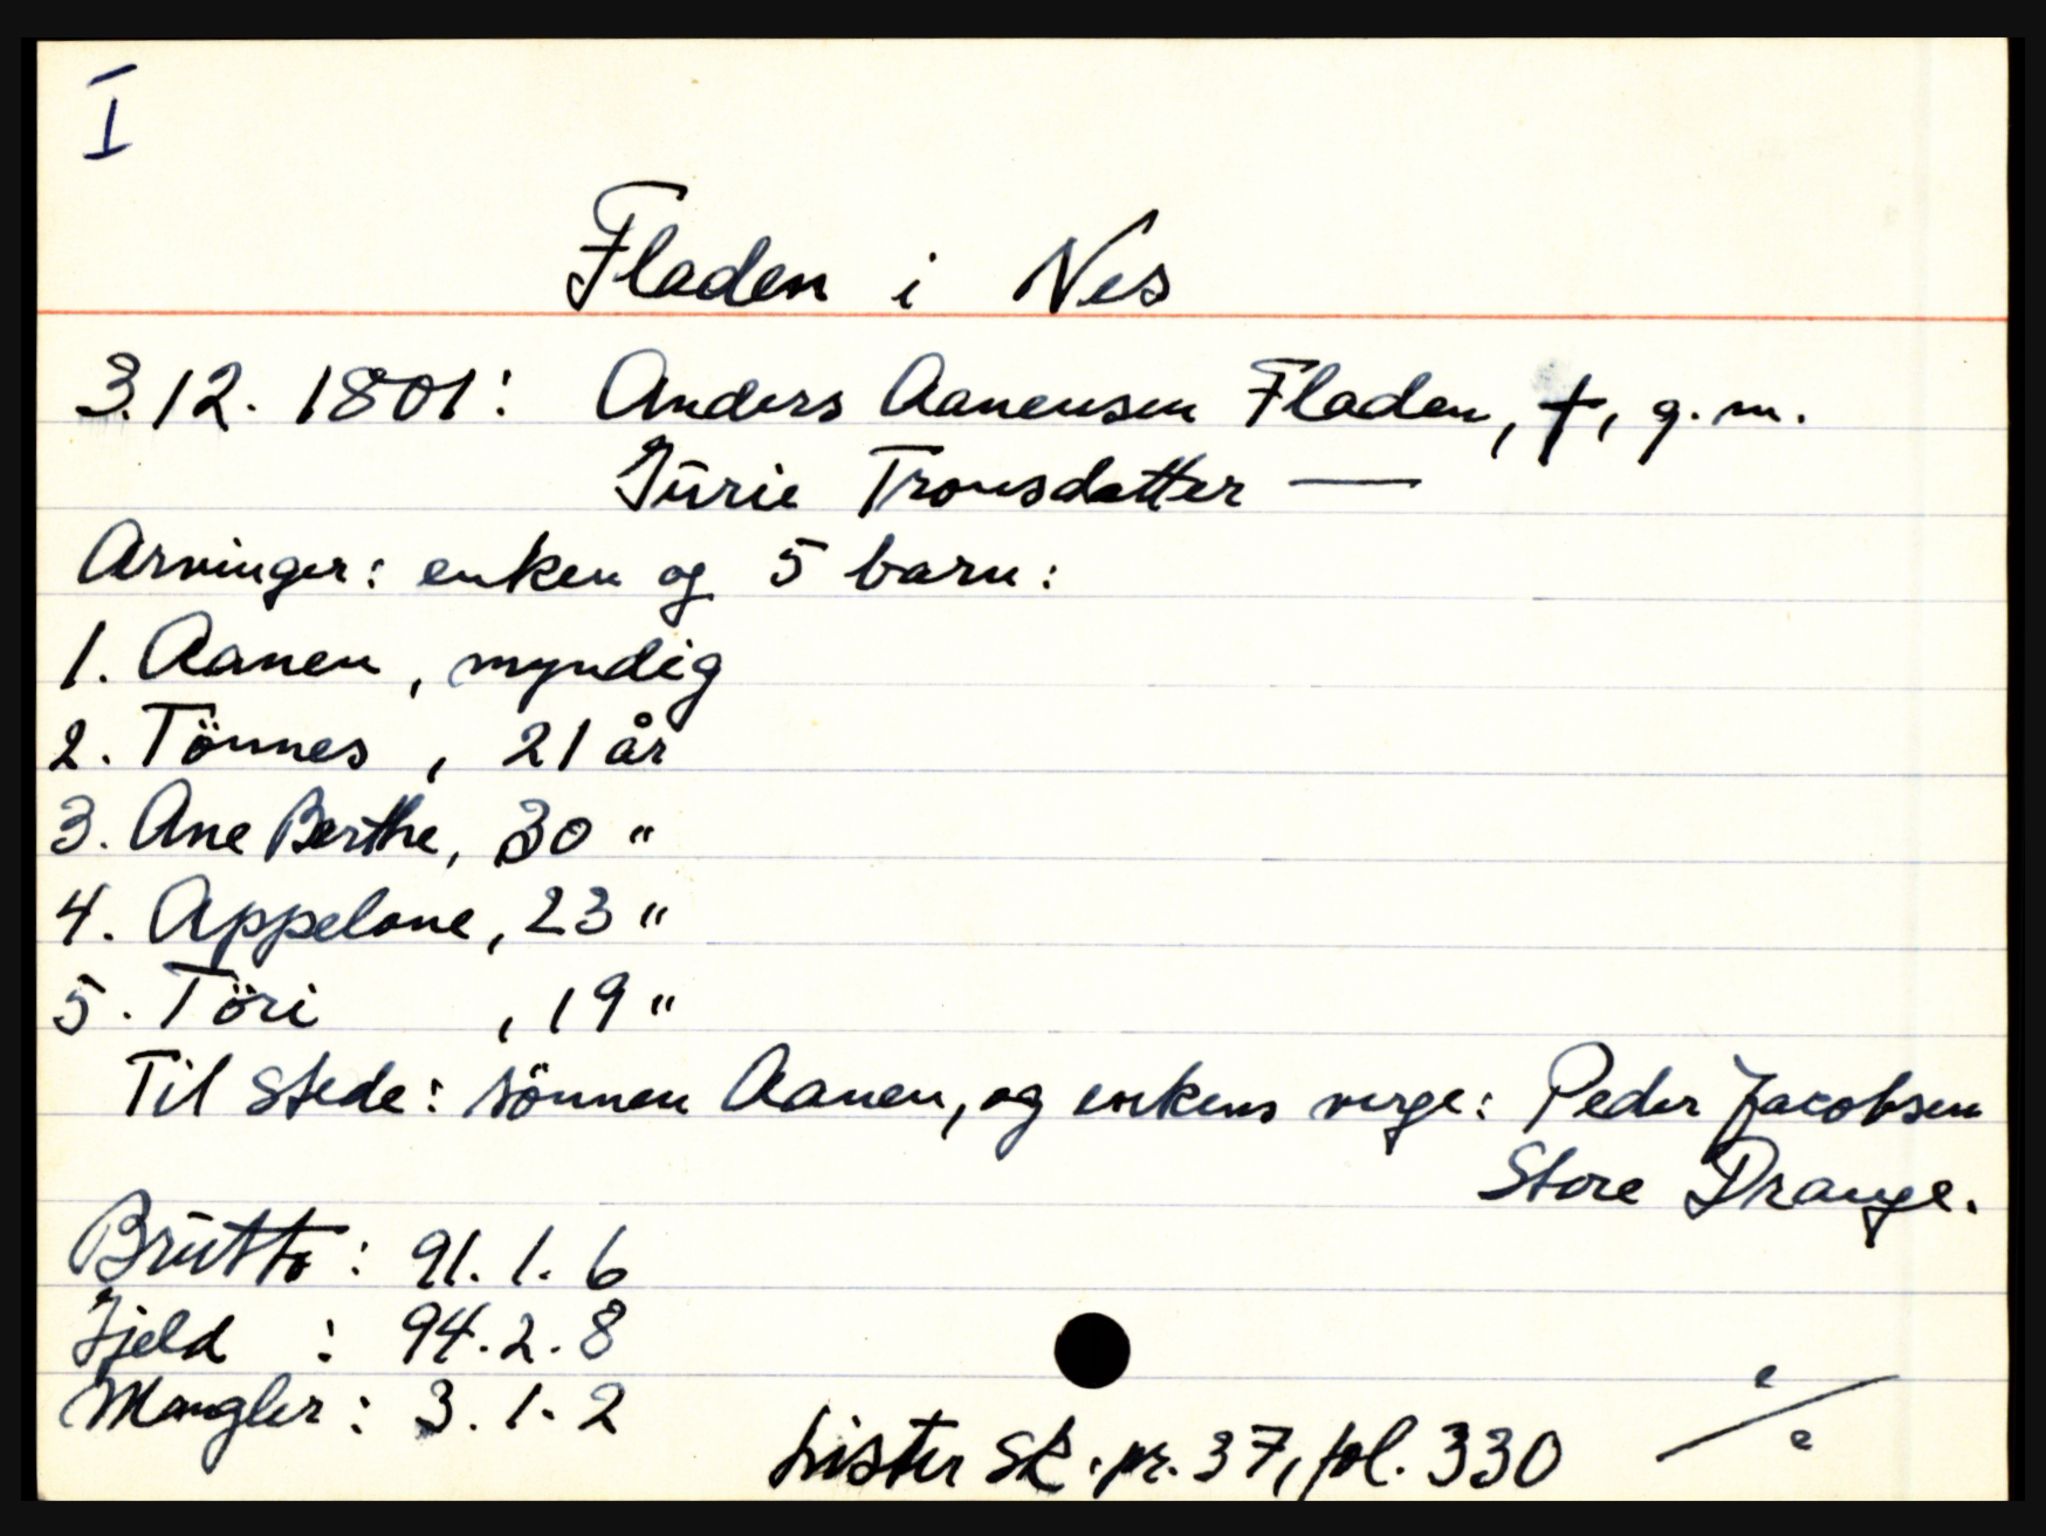 I
Fladen i Nes
3.12. 1801: Anders Aanensen Fladen, †, g.m.
Jūrie Tronsdatter —
Arvinger: enken og 5 barn:
1. Aanen, myndig
2. Tönnes, 21 år
3. Ane Berthe, 30 "
4. Appelone, 23 "
5. Töri, 19 "
Til stede: sönnen Aanen, og enkens verge: Peder Jacobsen
Store Drange.
Brūtto: 91. 1. 6
Gjeld: 94. 2. 8
Mangler: 3. 1. 2
Lister sk.pr. 37, fol. 330
e/e